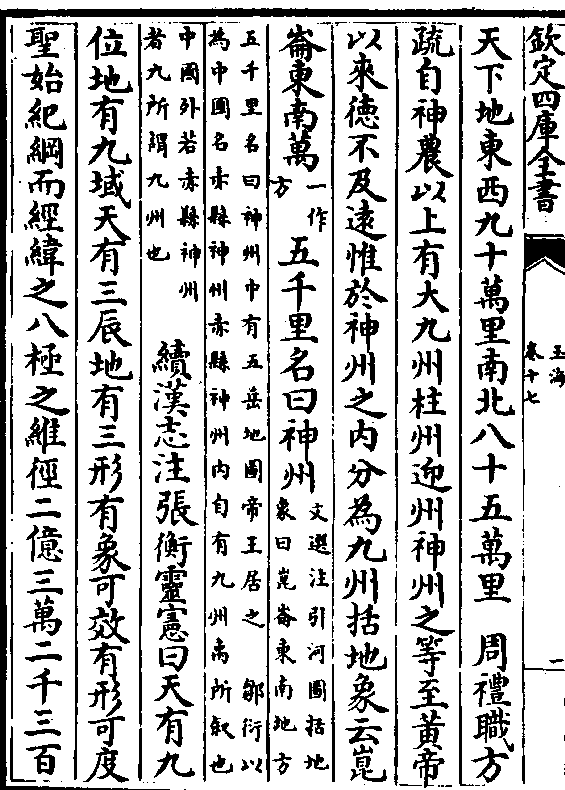 欽定四庫全書
玉海
卷十七
二
天下地東西九十萬里南北八十五萬里　周禮職方
疏自神農以上有大九州柱州迎州神州之等至黃帝
以來德不及遠惟於神州之内分為九州括地象云崑
崙東南萬一作方五千里名曰神州文選注引河圖括地象曰崑崙東南地方
五千里名曰神州中有五岳地圖帝王居之　鄒衍以
為中國名赤縣神州赤縣神州内自有九州禹所叙也
中國外若赤縣神州
者九所謂九州也
續漢志注張衡靈憲曰天有九
位地有九域天有三辰地有三形有象可效有形可度
聖始紀綱而經緯之八極之維徑二億三萬二千三百